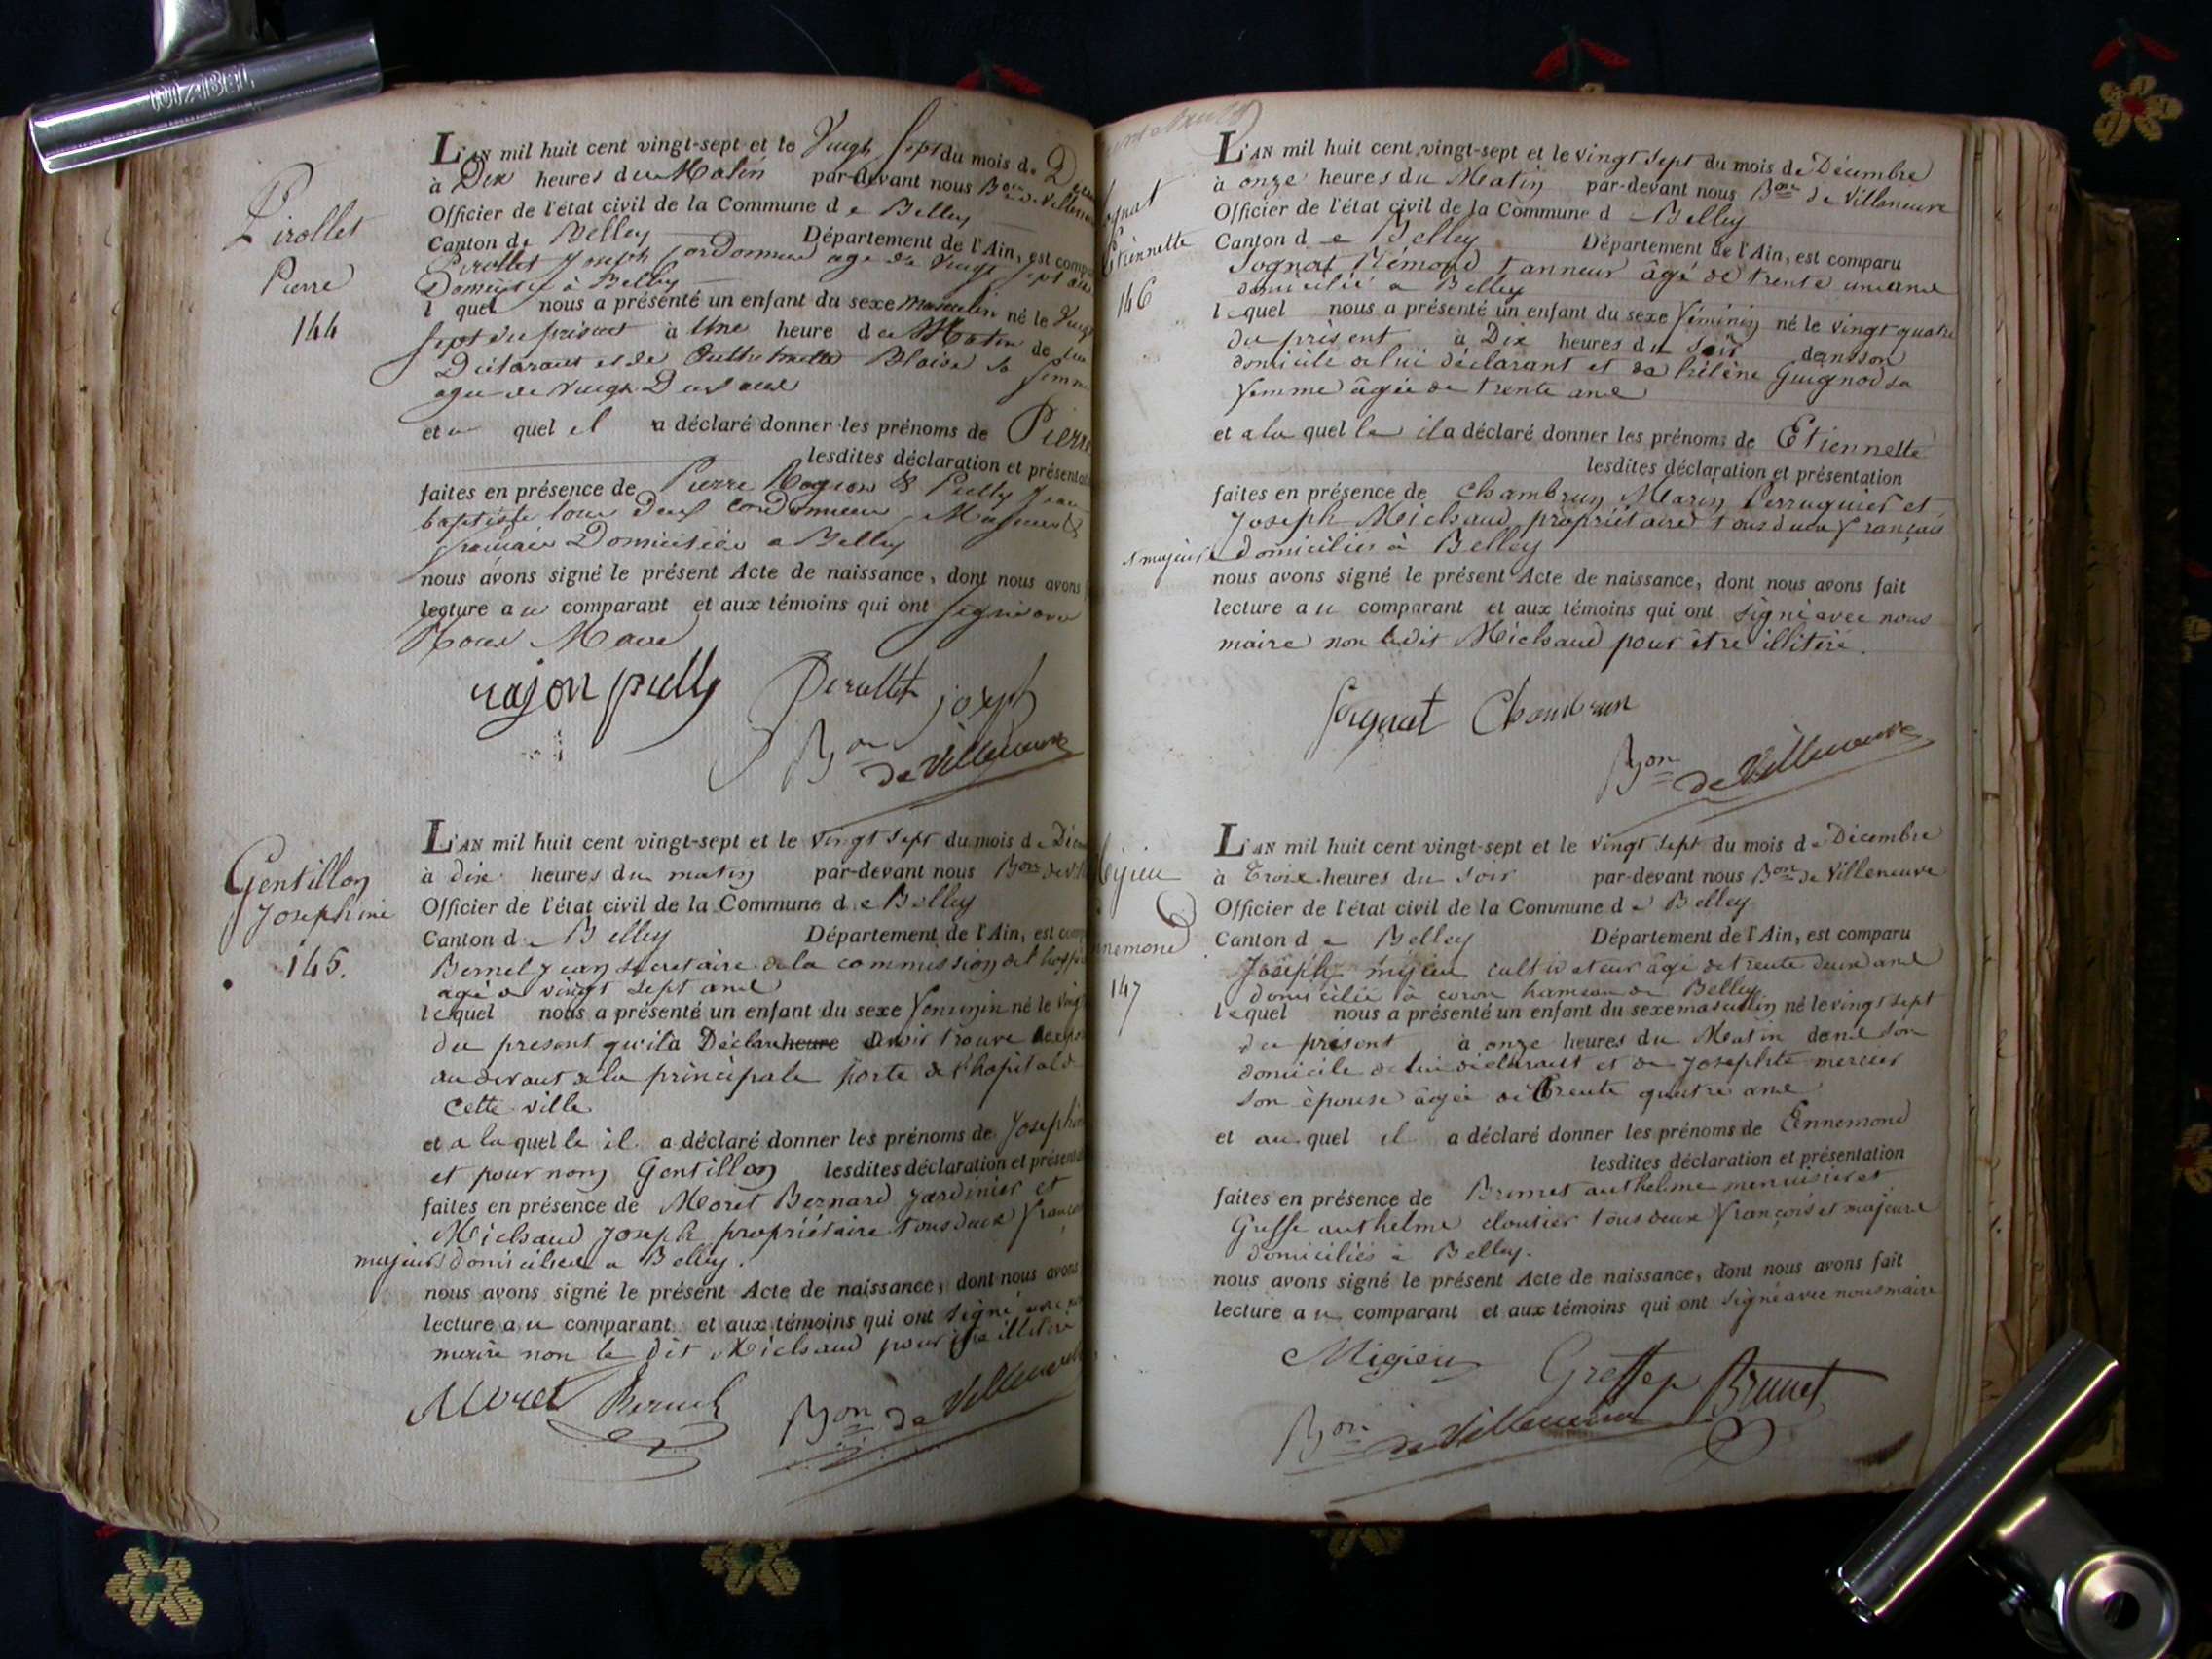 DIABEL
Pirollet
Pierre
144
L'AN mil huit cent vingt-sept et le Vingt Sept du mois de
à Dix heures du Matin par-devant nous Bon de Villeneu
Officier de l'état civil de la Commune de Belley
Canton de Belley Département de l'Ain, est compa
Pirollet Joseph Cordonnier agé de Vingt Sept ans
Domicilié à Belley
lequel nous a présenté un enfant du sexe masculin né le Vingt
Sept du présent à Une heure du Matin de lui
Déclarant et de Blaise sa femme
agée de Vingt Deux ans
et au quel il a déclaré donner les prénoms de Pierre
lesdites déclaration et présentat
faites en présence de Pierre Rogeon & Pully Jean
baptiste tous deux Cordonniers, Majeurs &
français Domiciliés a Belley
nous avons signé le présent Acte de naissance, dont nous avons
lecture au comparant et aux témoins qui ont signé avec
Nous Maire
rajon pully Perullet joseph
Bon de Villeneuve
Gentillon
Josephine
145.
L'AN mil huit cent vingt-sept et le vingt sept du mois de Déc
à dix heures du matin par-devant nous Bon de Vil
Officier de l'état civil de la Commune de Belley
Canton de Belley Département de l'Ain, est comp
Bernel Jean secretaire de la commission de l'hospi
agé de vingt sept ans
lequel nous a présenté un enfant du sexe feminin né le ving
du present qu'il a Déclaré heure avoir trouvé exposé
au devant de la principale porte de l'hopital de
cette ville
et a la quelle il a déclaré donner les prénoms de Josephin
et pour nom Gentillon lesdites déclaration et présenta
faites en présence de Moret Bernard jardinier et
Michaud Joseph propriétaire tous deux françois
majeurs domiciliés a Belley.
nous avons signé le présent Acte de naissance, dont nous avons
lecture au comparant et aux témoins qui ont signé avec
maire non le dit Michaud pour être illitéré
Moret Bernel Bon de Villeneuve
ognat
Etiennette
146
L'AN mil huit cent vingt-sept et le vingt sept du mois de Décembre
à onze heures du Matin par-devant nous Bon de Villeneuve
Officier de l'état civil de la Commune de Belley
Canton de Belley Département de l'Ain, est comparu
Sognat Rémond tanneur âgé de trente un ans
domicilié a Belley
lequel nous a présenté un enfant du sexe féminin né le vingt quatre
du présent à Dix heures du soir dans son
domicile de lui déclarant et de hélène Guignod sa
femme âgée de trente ans
et a la quelle il a déclaré donner les prénoms de Etiennette
lesdites déclaration et présentation
faites en présence de Chambrun Marin Perruquier et
Joseph Michaud propriétaire tous deux français
et majeurs domiciliés à Belley
nous avons signé le présent Acte de naissance, dont nous avons fait
lecture au comparant et aux témoins qui ont signé avec nous
maire non ledit Michaud pour être illitéré.
Sognat Chambrun
Bon de Villeneuve
Mijieu
nnemond
147
L'AN mil huit cent vingt-sept et le vingt sept du mois de Décembre
à Trois heures du soir par-devant nous Bon de Villeneuve
Officier de l'état civil de la Commune de Belley
Canton de Belley Département de l'Ain, est comparu
Joseph mijieu cultivateur âgé de trente deux ans
domicilié à coron hameau de Belley
lequel nous a présenté un enfant du sexe masculin né le vingt sept
du présent à onze heures du Matin dans son
domicile de lui déclarant et de Josephte mercier
son épouse âgée de trente quatre ans
et au quel il a déclaré donner les prénoms de Ennemond
lesdites déclaration et présentation
faites en présence de Brunet anthelme menuisier et
Greffe anthelme cloutier tous deux françois et majeurs
domiciliés à Belley.
nous avons signé le présent Acte de naissance, dont nous avons fait
lecture au comparant et aux témoins qui ont signé avec nous maire
Migieu Greffe Brunet
Bon de Villeneuve